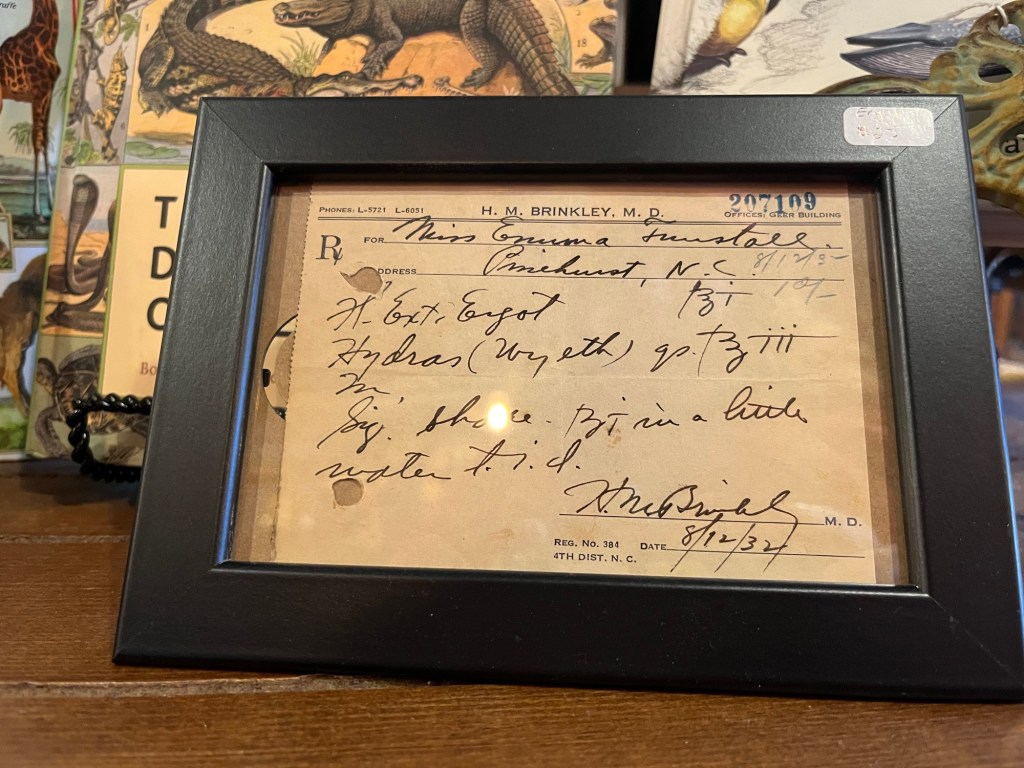 PHONES: L-5721 L-6051 H. M. BRINKLEY, M. D. 207109
OFFICES: GEER BUILDING
℞ FOR Miss Emma Tunstall.
ADDRESS Pinehurst, N.C. 8/12/32
Fl. Ext. Ergot ℥i
Hydras (Wyeth) qs. ℥iii
M
Sig. shake. ʒi in a little
water t.i.d.
H. M. Brinkley M. D.
REG. NO. 384 DATE 8/12/32
4TH DIST. N. C.
T
D
C
Bo
18